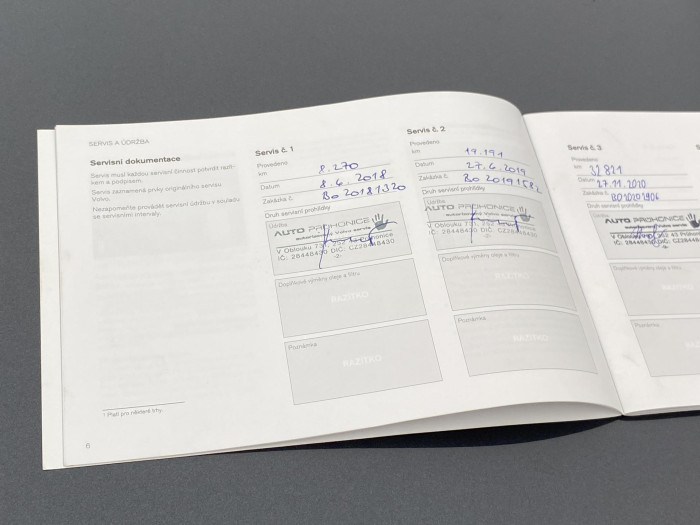 SERVIS A ÚDRŽBA
Servisní dokumentace
Servis musí každou servisní činnost potvrdit razít-
kem a podpisem.
Servis zaznamená prvky originálního servisu
Volvo.
Nezapomeňte provádět servisní údržbu v souladu
se servisními intervaly.
1 Platí pro některé trhy.
6
Servis č. 1
Provedeno
km 8.270
Datum 8.6.2018
Zakázka č. Bo20181320
Druh servisní prohlídky
Údržba
AUTO PRŮHONICE
autorizovaný Volvo servis
V Oblouku
IČ: 28448430 DIČ: CZ28448430
-2-
Doplňkové výměny oleje a filtru
RAZÍTKO
Poznámka
RAZÍTKO
Servis č. 2
Provedeno
km 19.191
Datum 27.6.2019
Zakázka č. Bo20191582
Druh servisní prohlídky
Údržba
AUTO PRŮHONICE
V Oblouku
IČ: 28448430 DIČ: CZ28448430
-2-
Doplňkové výměny oleje a filtru
RAZÍTKO
Poznámka
RAZÍTKO
Servis č. 3
Provedeno
km 32821
Datum 27.11.2020
Zakázka č. BO20201906
Druh servisní prohlídky
Údržba
AUTO PRŮHONICE
V Oblouku
IČ: 28448430 DIČ: CZ284
-2-
Doplňkové výměny oleje a filtru
Poznámka